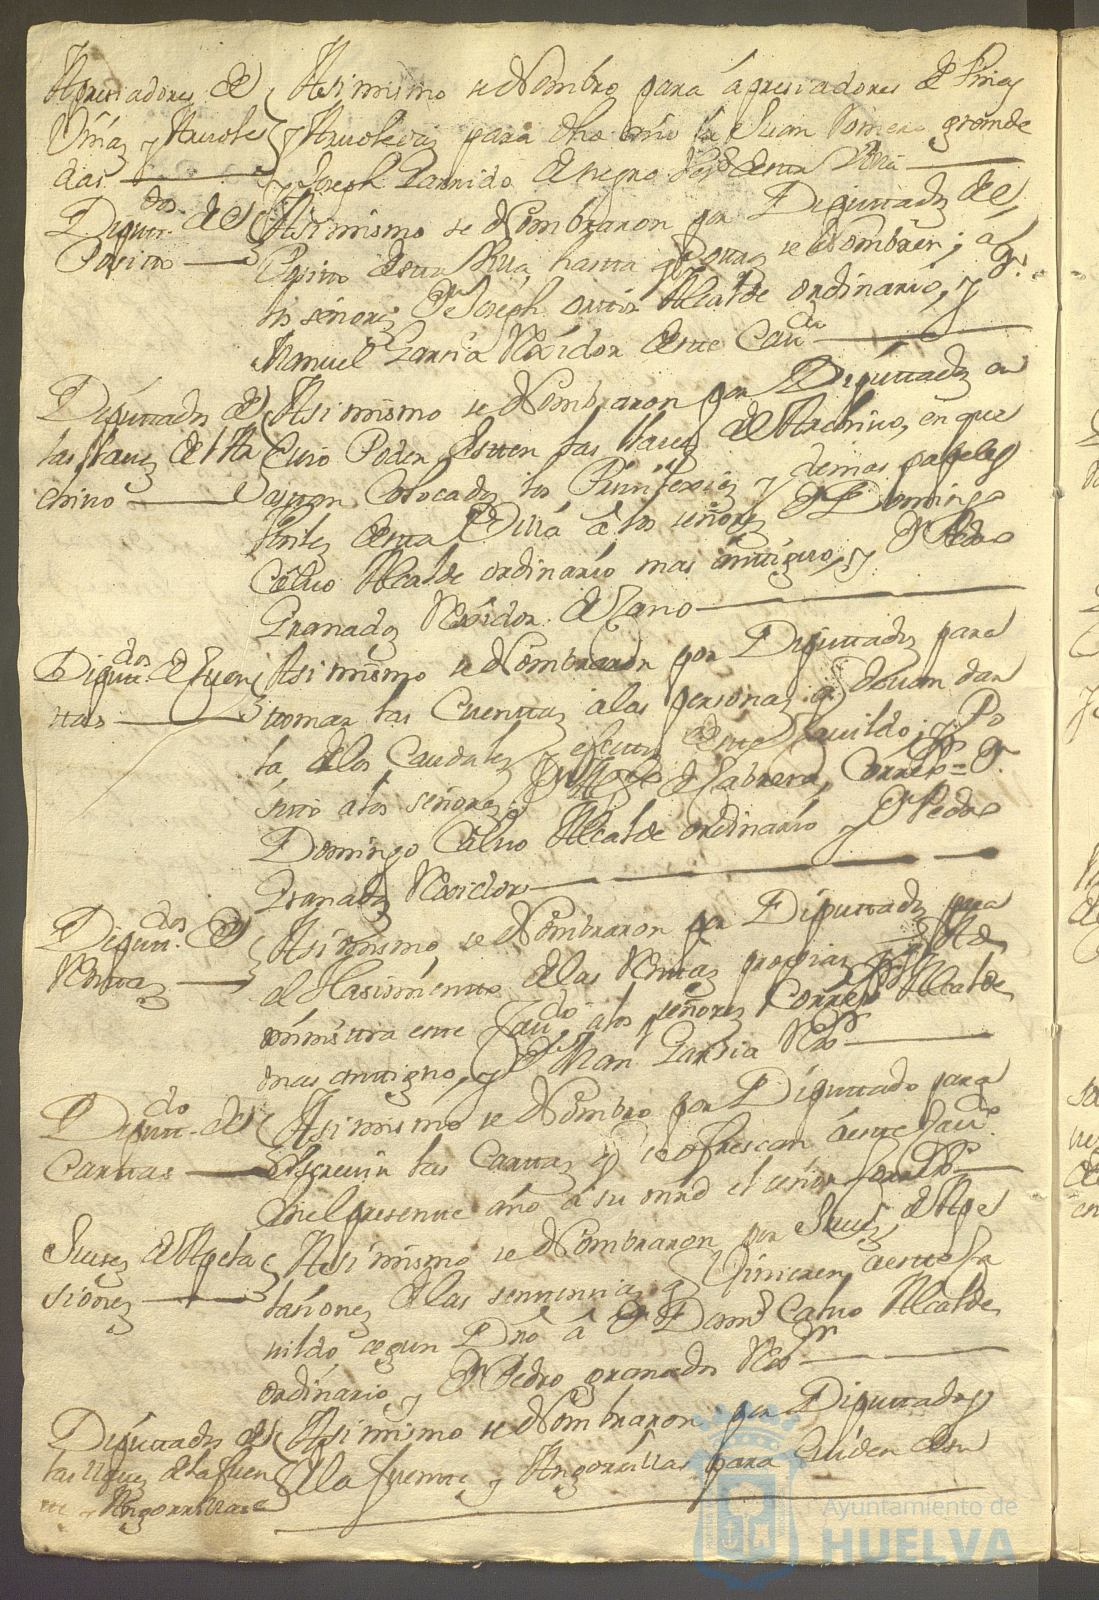 Apresiadores de
Viñas y Arvole
das
Asi mismo se Nombro para apresiadores de Viñas
y Arvoledas para dho año a Juan Romero grande
y Joseph Garrido de negro Vos desta Villa
Diputdos del
Posito
Asi mismo se Nombraron por Diputtados del
Posito desta Villa, hasta q otros se Nombren, a
los señores Dn Joseph Ortiz Alcalde ordinario, y Dn
Manuel Garsia Rexidor deste Cavdo
Diputtados de
las llaves del Ar
chivo
Asi mismo se Nombraron por Diputtados en
Cuio Poder Esten las llaves del Archivo, en que
estan Colocados los Privilexios y demas papeles
desta Villa a los señores Dn Domingo
Calvo Alcalde ordinario mas antiguo, y Dn Pedro
Granados Rexidor Decano
Diputdos de Quen
ttas
Asi mismo se Nombraron por Diputtados para
tomar las Cuenttas a las personas q devan dar
la de los Caudales y efectos deste Cavildo, y Po
sito a los señores Dn de Cabrera, Correxor Dn
Domingo Calvo Alcalde ordinario y Dn Pedro
Granados Rexidor
Diputdos de
Renttas
Asi mismo, se Nombraron por Diputtados para
el Hasimiento de las Renttas propias q Ad
ministra este Cavdo a los señores Correxor Alcalde
mas antiguo, y Dn Man Garsia Rexor
Diputdo de
Carttas
Asi mismo se Nombro por Diputtado para
Escrevir las Carttas q se ofrescan a este Cavdo
en el presente año a su mrd el señor Correxor
Jueses de Apela
siones
Asi mismo se Nombraron por Jueses de Ape
lasiones de las sentencias q Vinieren a este Ca
vildo segun Dro a Dn Domo Calvo Alcalde
ordinario, y Dn Pedro granados Rexor
Diputtados de
las llaves de la fuen
te y Angorrillas
Asi mismo se Nombraron por Diputtados
de la fuente, y Angorrillas para Cuiden de su
Ayuntamiento de
HUELVA